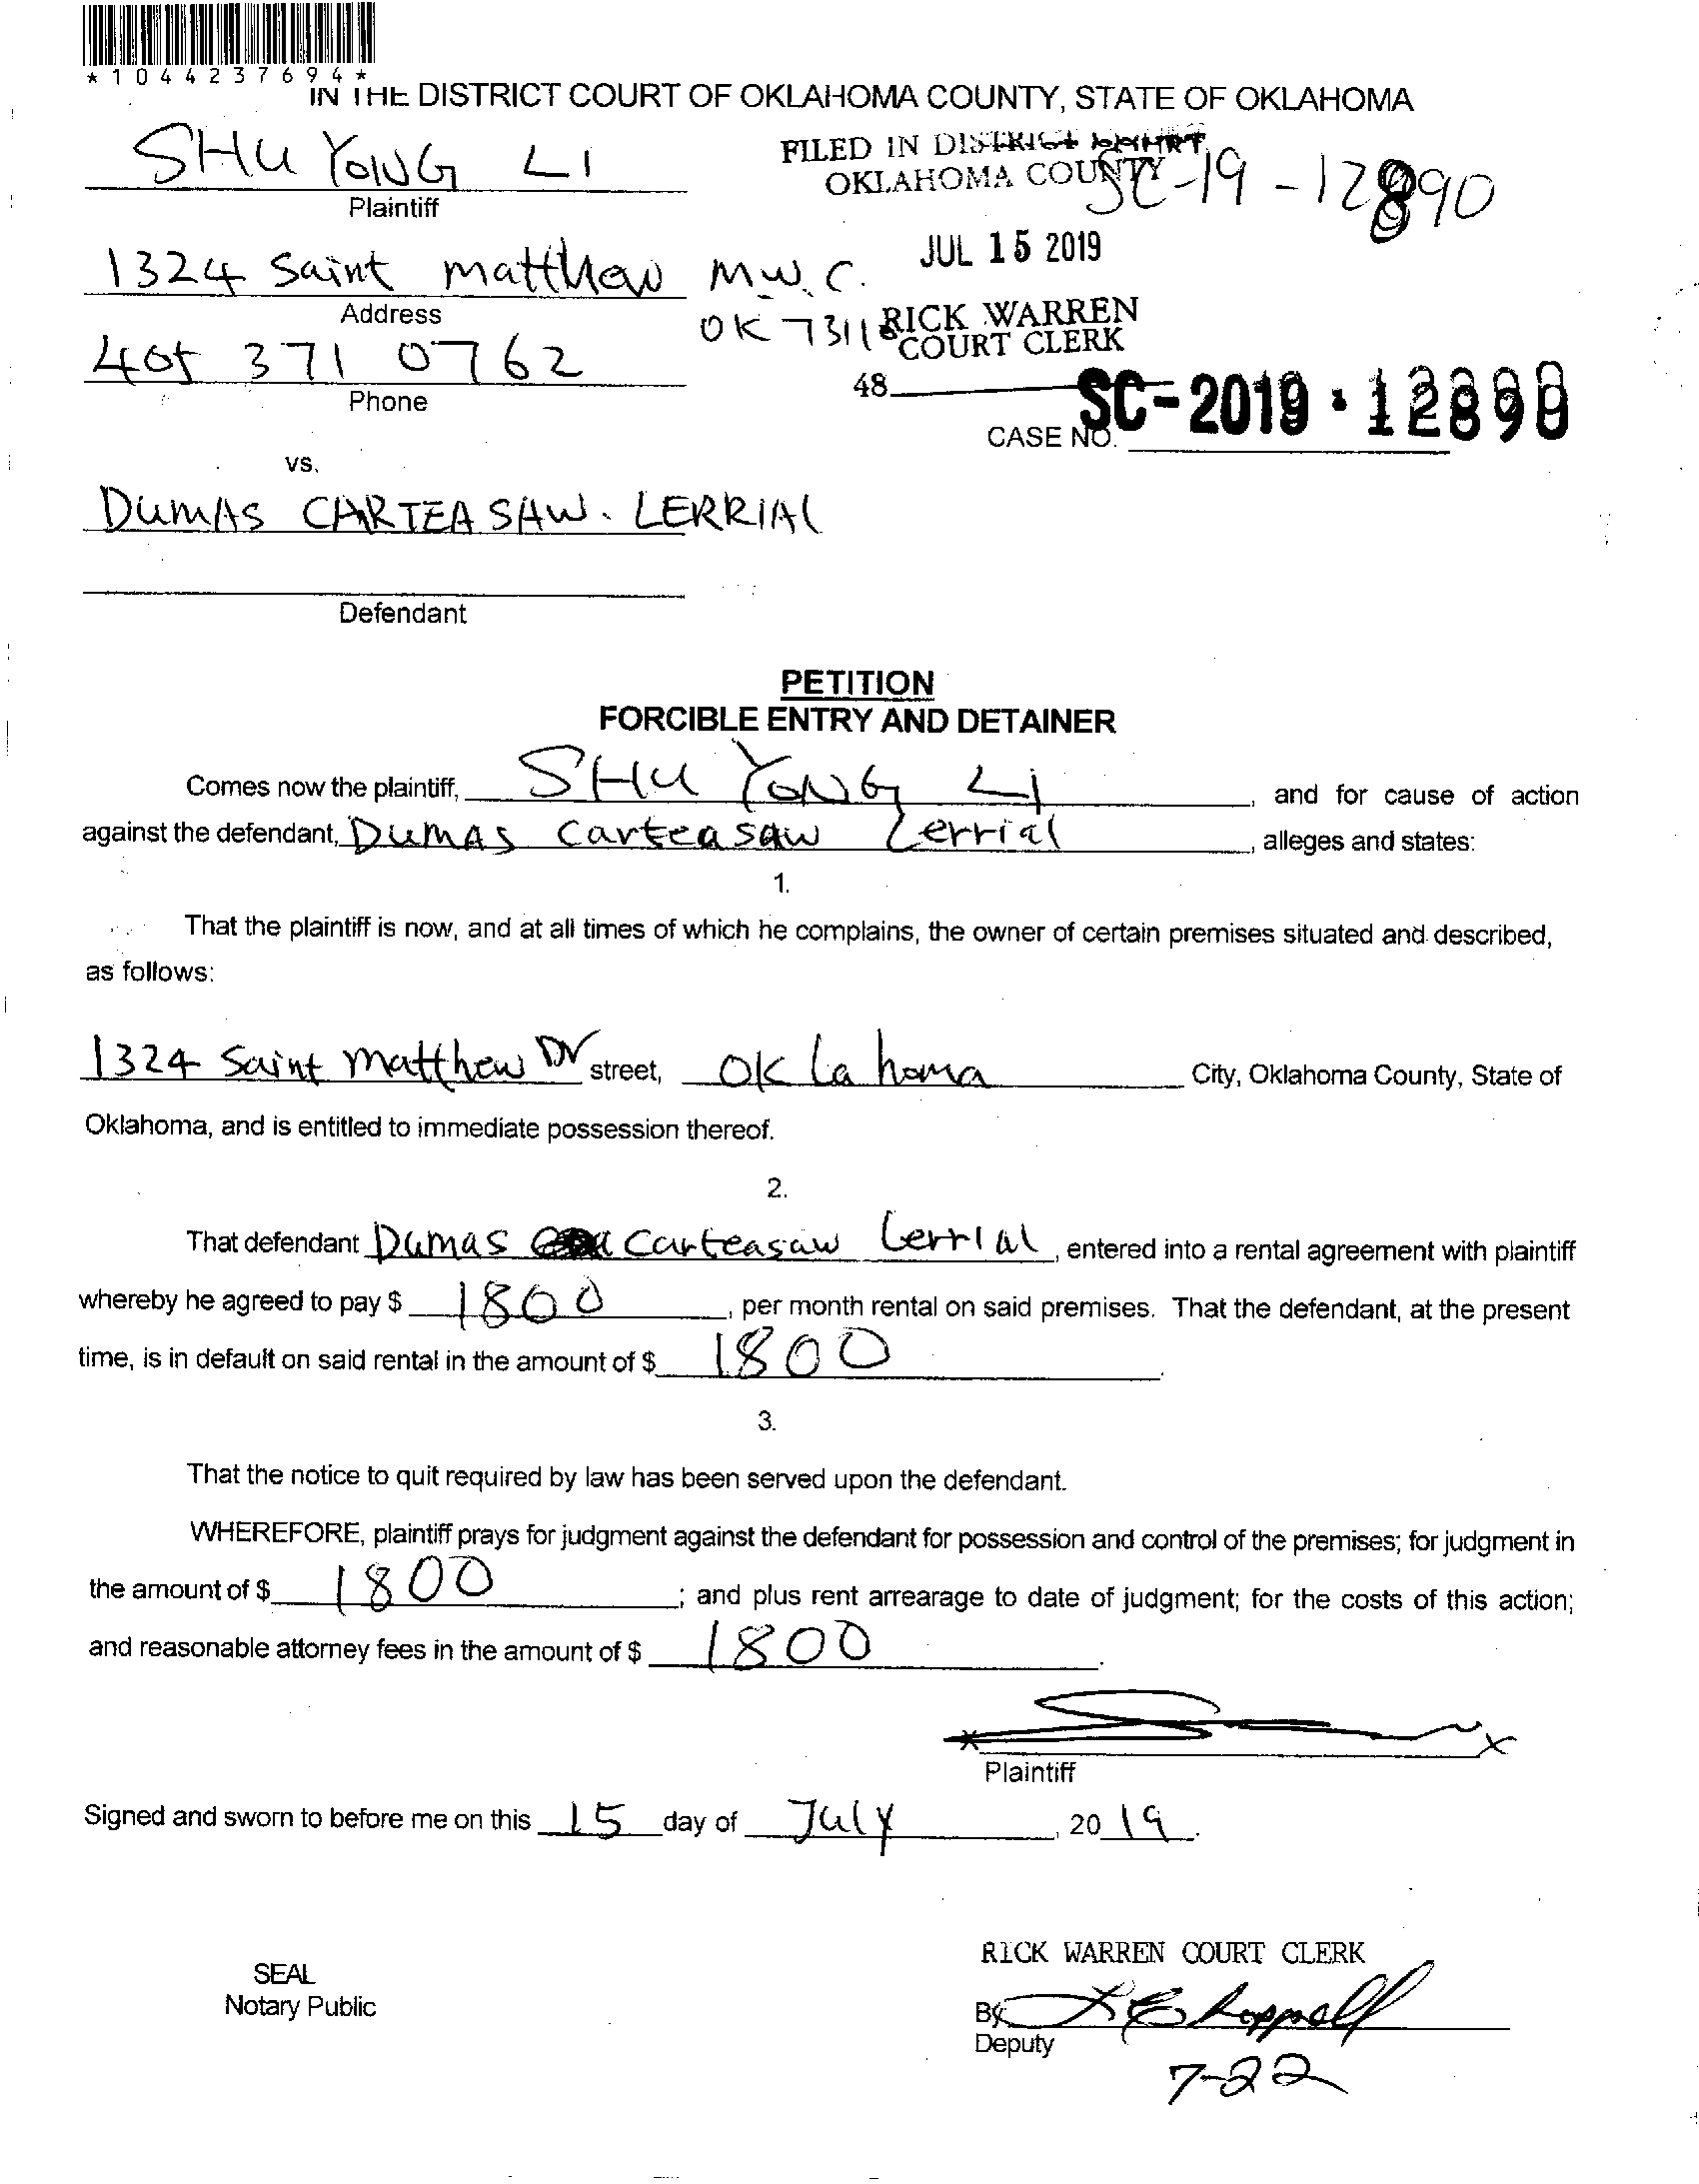 *1044237694*
IN THE DISTRICT COURT OF OKLAHOMA COUNTY, STATE OF OKLAHOMA
SHU YONG LI
Plaintiff
FILED IN DISTRICT COURT
OKLAHOMA COUNTY
SC-19-12890
1324 Saint matthew M.W.C.
Address
JUL 15 2019
OK 7311
RICK WARREN
COURT CLERK
405 371 0762
Phone
48
CASE NO. SC-2019-
vs.
DUMAS CARTEASAW. LERRIAL
Defendant
PETITION
FORCIBLE ENTRY AND DETAINER
Comes now the plaintiff, SHU YONG Li, and for cause of action
against the defendant, DUMAS Carteasaw Lerrial, alleges and states:
1.
That the plaintiff is now, and at all times of which he complains, the owner of certain premises situated and described,
as follows:
1324 Saint Matthew Dr street, Oklahoma City, Oklahoma County, State of
Oklahoma, and is entitled to immediate possession thereof.
2.
That defendant Dumas Carteasaw Lerrial, entered into a rental agreement with plaintiff
whereby he agreed to pay $ 1800, per month rental on said premises. That the defendant, at the present
time, is in default on said rental in the amount of $ 1800.
3.
That the notice to quit required by law has been served upon the defendant.
WHEREFORE, plaintiff prays for judgment against the defendant for possession and control of the premises; for judgment in
the amount of $ 1800; and plus rent arrearage to date of judgment; for the costs of this action;
and reasonable attorney fees in the amount of $ 1800.
x x
Plaintiff
Signed and sworn to before me on this 15 day of July, 2019.
RICK WARREN COURT CLERK
SEAL
Notary Public
By
Deputy
7-22